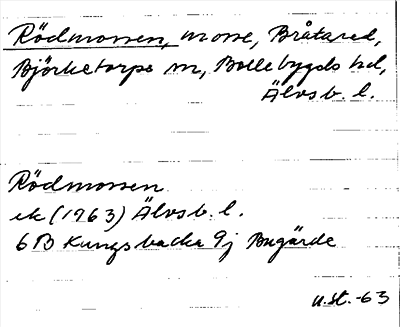 Rödmossen, mosse, Bråtared,
Björketorps sn, Bollebygds hd,
Älvsb. l.
Rödmossen
ek (1963) Älvsb. l.
6B Kungsbacka 9j Bugärde
u.st. -63